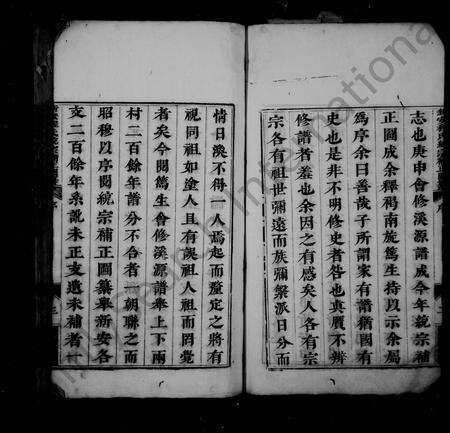 志也庚申會修溪源譜成今年統宗補
正圖成余釋褐南旋篤生待以示余屬
為序余曰善哉子所謂家有譜猶國有
史也是非不明修史者咎也真贋不辨
修譜者羞也余因之有感矣人各有宗
宗各有祖世彌遠而族彌繁派日分而
情日渙不得一人焉起而釐定之將有
視同祖如塗人且有誤祖人祖而罔覺
者矣今閱篤生會修溪源譜舉上下兩
村二百餘年譜分不合者一朝聯之而
昭穆以序閱統宗補正圖纂舉新安各
支二百餘年系訛未正支遺未補者一
Research International